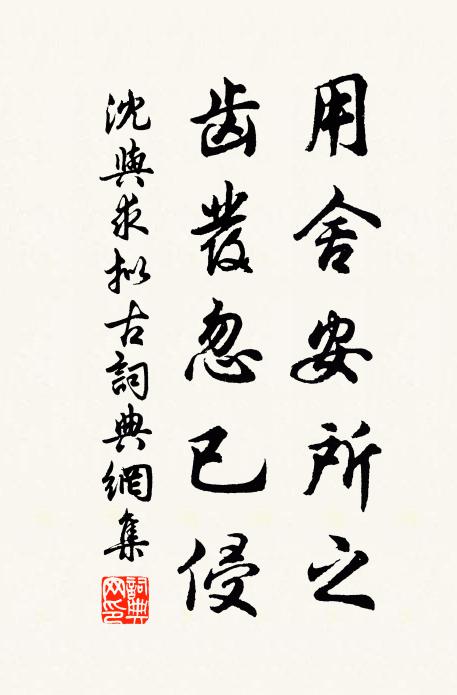 用舍安所之
齿發忽已侵
沈與求拟古詞典網集
詞典網印